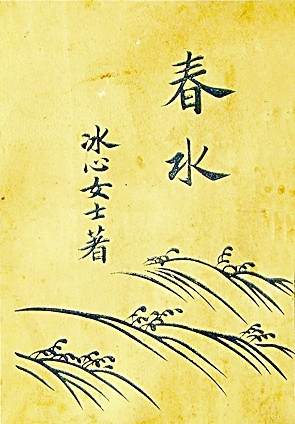 春水
冰心女士著